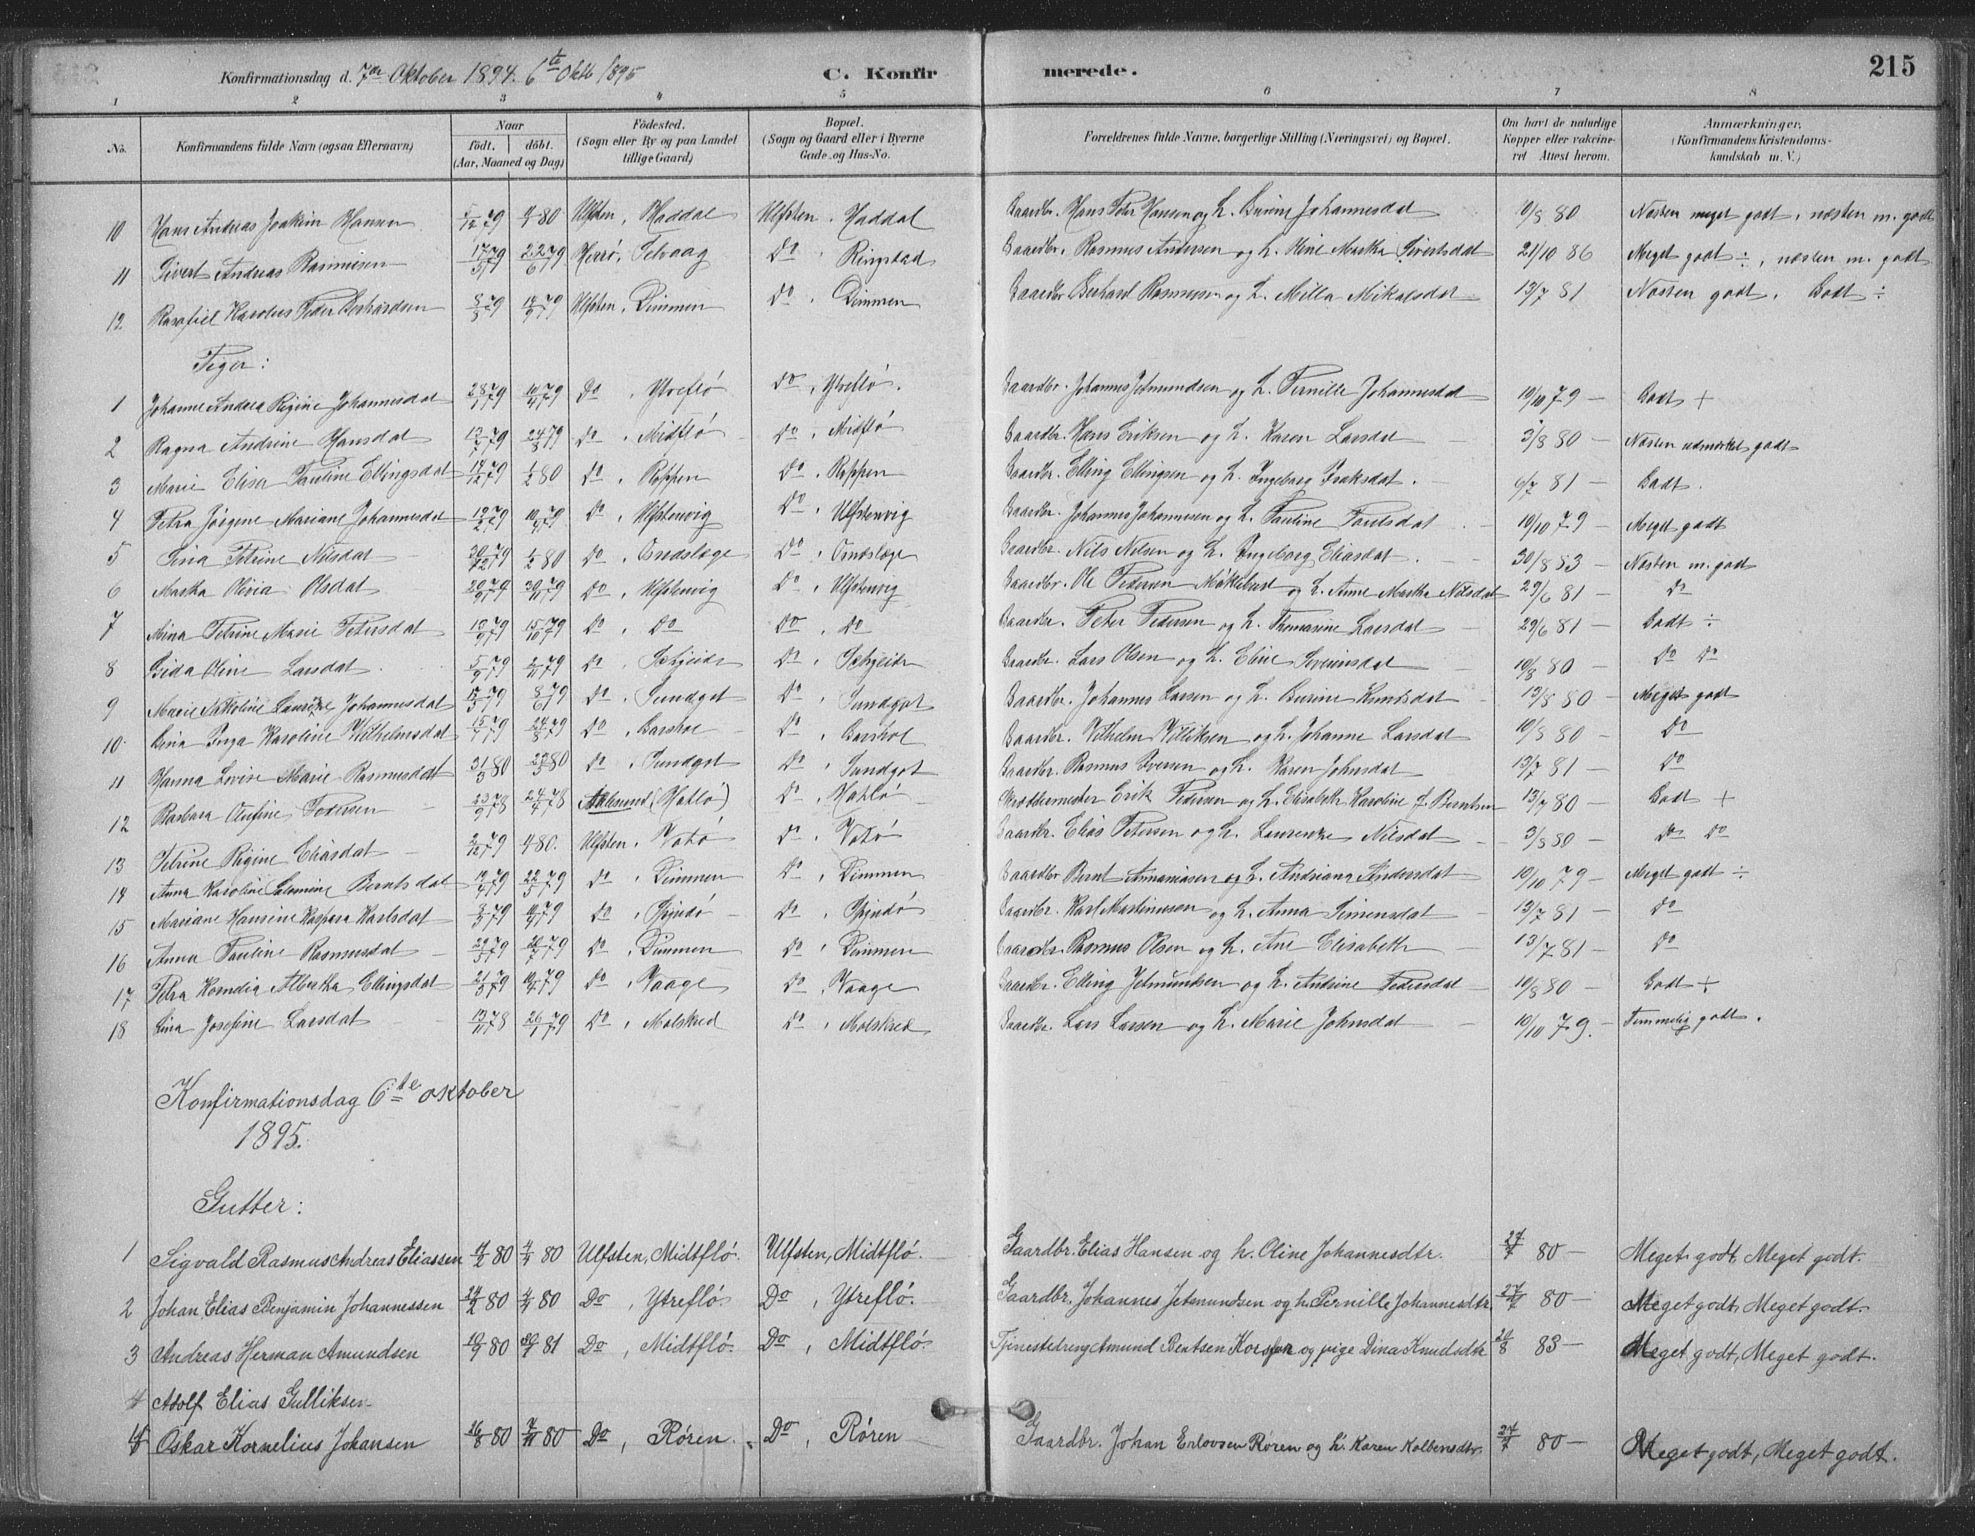 Konfirmationsdag d. 7de Oktober 1894. 6te Oktb 1895 C. Konfirmerede. 215
1 2 3 4 5 6 7 8
No. Konfirmandens fulde Navn (ogsaa Efternavn) Naar födt. döbt. (Aar, Maaned og Dag) Födested. (Sogn eller By og paa Landet tillige Gaard) Bopæl. (Sogn og Gaard eller i Byerne Gade og Hus-No. Forældrenes fulde Navne, borgerlige Stilling (Næringsvei) og Bopæl. Om havt de naturlige Kopper eller vakcineret Attest herom. Anmærkninger. (Konfirmandens Kristendomskundskab m. V.)
10 Hans Andreas Joakim Hansen 5/12 79 4/1 80 Ulfsten, Haddal Ulfsten, Haddal Gaardbr. Hans Peter Hansen og h. Berine Johannesdat 10/8 80 Næsten meget godt, næsten m. godt
11 Sivert Andreas Rasmusen 17/5 79 22/6 79 Herö, Telvaag Do, Ringstad Gaardbr. Rasmus Andersen og h. Oline Martha Sivertsdat 21/10 86 Meget godt ÷, næsten m. godt
12 Rasmus Karolus Peder Berhardsen 8/3 79 14/4 79 Ulfsten, Dimmen Do, Dimmen Gaardbr. Berhard Rasmusen og h. Milla Mikalsdat 13/7 81 Næsten godt. Godt ÷
Piger:
1 Johanne Andrea Regine Johannesdat 28/1 79 10/4 79 Do, Ytreflö Do, Ytreflö. Gaardbr. Johannes Jetmundsen og h. Pernille Johannesdat 10/10 79 — Godt +
2 Ragna Andrine Hansdat 13/7 79 24/8 79 Do, Midflö Do, Midflö Gaardbr. Hans Eriksen og h. Karen Larsdat 3/8 80 — Næsten udmærket godt
3 Marie Elisa Pauline Ellingsdat 14/12 79 1/2 80 Do, Röppen Do, Röppen Gaardbr. Elling Ellingsen og h. Ingeborg Isaksdat. 6/7 81 — Godt.
4 Petra Jörgene Mariane Johannesdat 12/2 79 10/4 79 Do, Ulfstenvig Do, Ulfstenvig Gaardbr. Johannes Johannesen og h. Pauline Paulsdat 10/10 79 — Meget godt
5 Sina Petrine Nilsdat 20/12 79 1/2 80 Do, Osneslæge Do, Osneslæge Gaardbr. Nils Nilsen og h. Ingeborg Eliasdat. 30/8 83 — Næsten m. godt
6 Martha Olivia Olsdat 20/9 79 30/11 79 Do, Ulfstenvig Do, Ulfstenvig Gaardbr. Ole Pedersen Möklebust og h. Anne Martha Nilsdat 29/6 81 — Do
7 Nina Petrine Marie Petersdat 10/9 79 15/10 79 Do, Do Do, Do Gaardbr. Peter Pedersen og h. Thomasine Larsdat 29/6 81 — Godt ÷
8 Gida Oline Larsdat. 5/9 79 2/11 79 Do, Skjeide Do, Skjeide Gaardbr. Lars Olsen og h. Eline Severinsdat 10/8 80 — Do Do
9 Marie Nikoline Laurine Johannesdat 15/5 79 8/6 79 Do, Sundgot Do, Sundgot Gaardbr. Johannes Larsen og h. Berine Knutsdat 13/8 80 — Meget godt
10. Gina Inga Karoline Vilhelmsdat 15/7 79 24/8 79 Do, Garshol Do, Garshol Gaardbr. Vilhelm Villiksen og h. Johanne Larsdat 10/8 80 — Do
11 Hanna Lovise Marie Rasmusdat 31/3 80 27/5 80 Do, Sundgot Do, Sundgot Gaardbr. Rasmus Iversen og h. Karen Johnsdat 13/7 81 — Do
12 Barbara Olufine Pedersen 23/9 78 24/7 78 Aalesund (Hatlö) Do, Hatlö Skræddermester Erik Pedersen og h. Elisabeth Karoline f. Berntsen 13/7 80 — Godt +
13 Petrine Regine Eliasdat 2/12 79 4/1 80. Ulfsten, Vatö Do, Vatö Gaardbr. Elias Petersen og h. Laurense Nilsdat 3/8 80 — Do Do
14 Anna Karoline Lumine Berntsdat 14/4 79 22/5 79 Do, Dimmen Do, Dimmen Gaardbr Bernt Annaniasen og h. Andriana Andersdat 10/10 79 — Meget godt ÷
15 Mariane Hansine Kaspara Karlsdat 8/3 79 10/4 79 Do, Spjudö Do, Spjudö Gaardbr. Karl Martinusen og h. Anna Simensdat 13/7 81 — Do
16 Anna Pauline Rasmusdat 29/5 79 20/7 79 Do, Dimmen Do, Dimmen Gaardbr. Rasmus Olsen og h. Ane Elisabeth 13/7 81 — Do
17 Petra Korndia Albertha Ellingsdat 21/3 79 10/4 79 Do, Vaage Do, Vaage Gaardbr. Elling Jetmundsen og h. Andrine Pedersdat 10/8 80 — Godt ÷
18 Gina Josefine Larsdat 13/11 78 26/1 79 Do, Molskred Do, Molskred Gaardbr. Lars Larsen og h. Marie Johnsdat 10/10 79. — Temmelig godt.
Konfirmationsdag 6te oktober
1895.
Gutter:
1 Sigvald Rasmus Andreas Eliassen 11/2 80 4/4 80 Ulfsten, Midtflö. Ulfsten, Midtflö. Gaardbr. Elias Hansen og h. Oline Johannesdtr. 27/7 80 — Meget godt, Meget godt.
2 Johan Elias Benjamin Johannessen 24/2 80 4/4 80 Do, Ytreflö. Do, Ytreflö. Gaardbr. Johannes Jetmundsen og h. Pernille Johannesdtr. 27/7 80 — Meget godt, Meget godt.
3 Andreas Herman Amundsen 19/9 80 30/1 81 Do, Midtflö. Do, Midtflö. Tjenestedreng Amund Bentsen Korsfur og pige Dina Knudsdtr 20/8 83 — Meget godt, Meget godt.
4 Adolf Elias Gulliksen
5 Oskar Kornelius Johansen 26/8 80 7/11 80 Do, Rören. Do, Rören Gaardbr. Johan Enlovsen Rören og h. Karen Kolbensdtr. 27/7 80 — Meget godt, Meget godt.